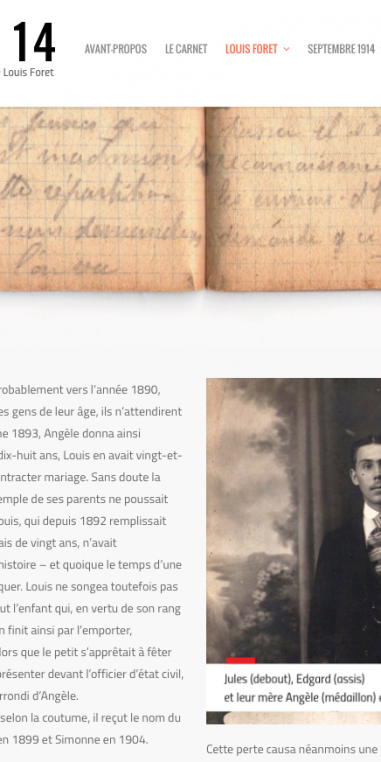 14
Louis Foret
AVANT-PROPOS LE CARNET LOUIS FORET SEPTEMBRE 1914
robablement vers l'année 1890,
es gens de leur âge, ils n'attendirent
ne 1893, Angèle donna ainsi
dix-huit ans, Louis en avait vingt-et-
ntracter mariage. Sans doute la
emple de ses parents ne poussait
ouis, qui depuis 1892 remplissait
ais de vingt ans, n'avait
histoire – et quoique le temps d'une
quer. Louis ne songea toutefois pas
ut l'enfant qui, en vertu de son rang
n finit ainsi par l'emporter,
lors que le petit s'apprêtait à fêter
présenter devant l'officier d'état civil,
rrondi d'Angèle.
selon la coutume, il reçut le nom du
en 1899 et Simonne en 1904.
Jules (debout), Edgard (assis)
et leur mère Angèle (médaillon)
Cette perte causa néanmoins une